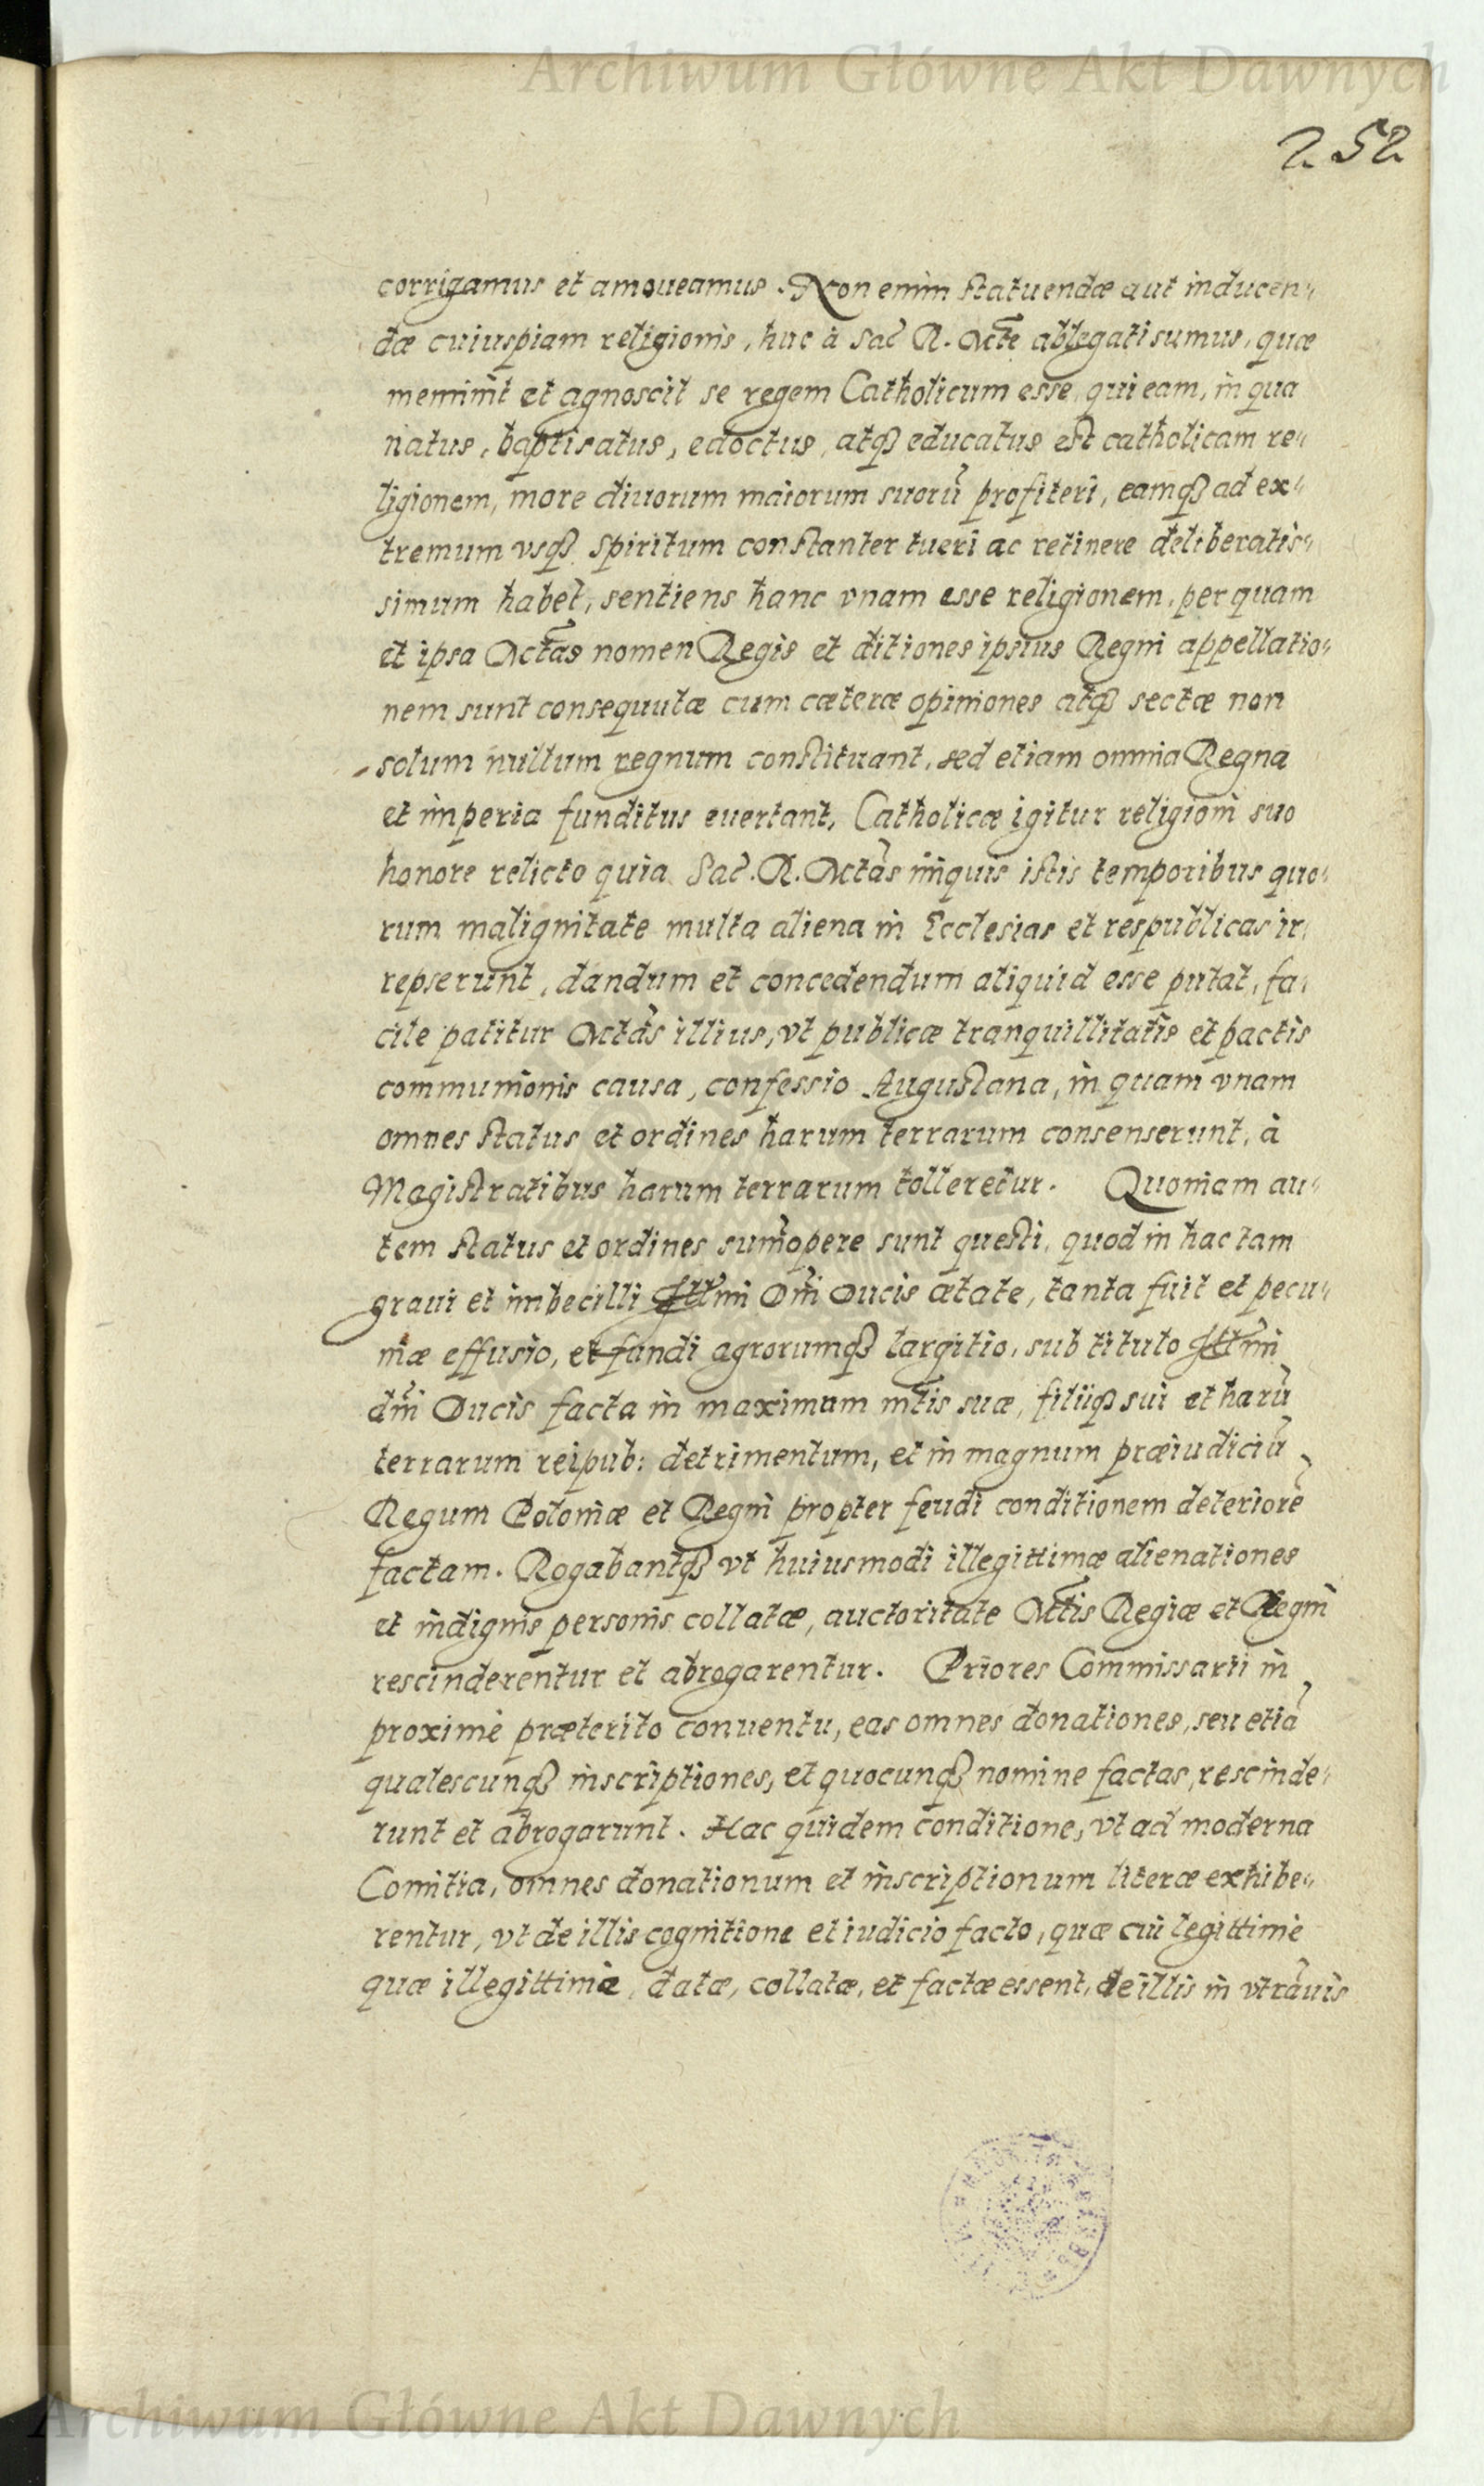 Archiwum Główne Akt Dawnych
252
corrigamus et amoueamus. Non enim statuendæ aut inducen„
dæ cuiuspiam religionis, huc à Sac̃ R. Mt̃te ablegati sumus, quæ
meminit et agnoscit se regem Catholicum esse, qui eam, in qua
natus, baptisatus, edoctus, atqꝫ educatus est catholicam re„
ligionem, more diuorum maiorum suorũ profiteri, eamqꝫ ad ex„
tremum vsqꝫ spiritum constanter tueri ac retinere deliberatis„
simum habet, sentiens hanc vnam esse religionem, per quam
et ipsa Mt̃tas nomen Regis et ditiones ipsius Regni appellatio„
nem sunt consequutæ cum cæteræ opiniones atqꝫ sectæ non
solum nullum regnum constituant, sed etiam omnia Regna
et imperia funditus euertant, Catholicæ igitur religioni suo
honore relicto quia Sac̃. R. Mt̃tas iniquis istis temporibus quo„
rum malignitate multa aliena in Ecclesias et respublicas ir„
repserunt, dandum et concedendum aliquid esse putat, fa„
cile patitur Mt̃tas illius, vt publicæ tranquillitatis et pactis
communionis causa, confessio Augustana, in quam vnam
omnes status et ordines harum terrarum consenserunt, à
Magistratibus harum terrarum tolleretur. Quoniam au„
tem status et ordines sum̃opere sunt questi, quod in hac tam
graui et imbecilli Illm̃i Dñi Ducis ætate, tanta fuit et pecu„
niæ effusio, et fundi agrorumqꝫ largitio, sub titulo Illm̃i
dñi Ducis facta in maximum mt̃tis suæ, filiiqꝫ sui et harũ
terrarum reipub: detrimentum, et in magnum præiudiciũ
Regum Poloniæ et Regni propter feudi conditionem deteriorẽ
factam. Rogabantqꝫ vt huiusmodi illegittimæ alienationes
et indignis personis collatæ, auctoritate Mt̃tis Regiæ et Regni
rescinderentur et abrogarentur. Priores Commissarii in
proximè præterito conuentu, eas omnes donationes, seu etiã
qualescunqꝫ inscriptiones, et quocunqꝫ nomine factas, rescinde„
runt et abrogarunt. Hac quidem conditione, vt ad moderna
Comitia, omnes donationum et inscriptionum literæ exhibe„
rentur, vt de illis cognitione et iudicio facto, quæ cui legittimè
quæ illegittimè, datæ, collatæ, et factæ essent, de illis in vtrãuis
Archiwum Główne Akt Dawnych